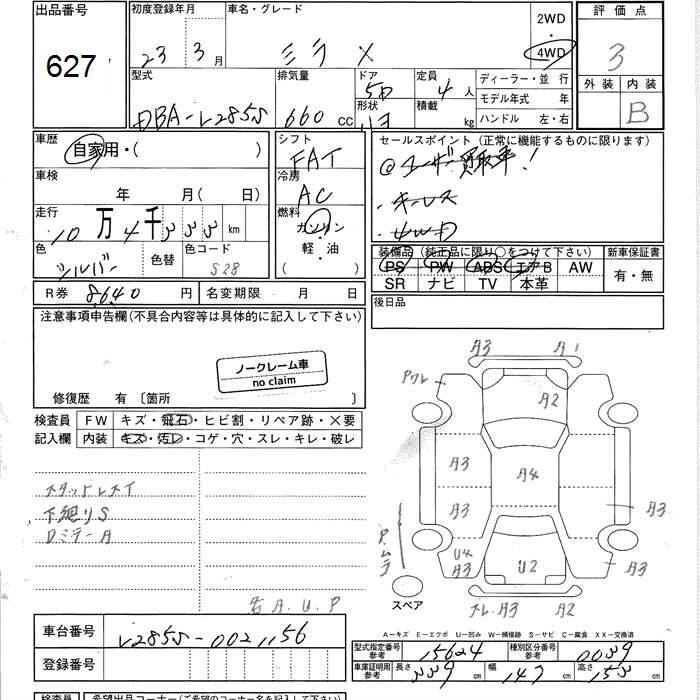 出品番号
627
初度登録年月
23年 3月
車名・グレード
ミラ X
2WD
・
4WD
評価点
3
外装 内装
B
型式
DBA-L285S
排気量
660 CC
ドア
5D
形状
定員
4人
積載
kg
ディーラー・並行
モデル年式 年
ハンドル 左・右
車歴
自家用・( )
車検
年 月( 日)
走行
10万4千 km
色
シルバー
色替
色コード
S28
シフト
FAT
冷房
AC
燃料
ガソリン
・
軽・油
( )
セールスポイント (正常に機能するものに限ります)
◎ユーザー買取車!
・キーレス
・4WD
装備品(純正品に限り○をつけて下さい)
PS PW ABS エアB AW
SR ナビ TV 本革
新車保証書
有・無
R券 8,640円
名変期限 月 日
後日品
注意事項申告欄(不具合内容等は具体的に記入して下さい)
ノークレーム車
no claim
修復歴 有〔箇所 〕
検査員
記入欄
FW キズ・飛石・ヒビ割・リペア跡・×要
内装 キズ・汚レ・コゲ・穴・スレ・キレ・破レ
スタッドレスタイ
下廻りS
Dミラー A
A.U.P
A3 A1
Pワレ
A2
A3
A4
A3
A3
A3
P.ムラ
U4
A3
U2
A3
スペア
スレ.A3 A2
A-キズ E-エクボ U-凹み W-補修跡 S-サビ C-腐食 XX-交換済
車台番号
L285S-0021156
登録番号
型式指定番号
参考
15624
種別区分番号
参考
0039
車庫証明用
参考
長さ 339 cm
幅 147 cm
高さ 153 cm
検査員
希望出品コーナー(ご希望のコーナー名をご記入下さい)